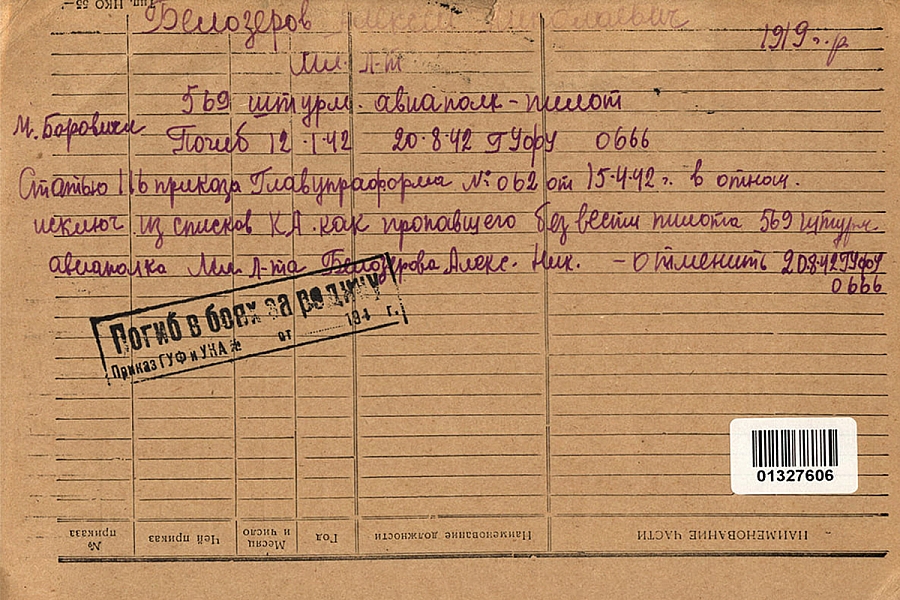 Тип. НКО 55—
Белозеров Алексей Николаевич
1919 г. р.
Мл. Л-т
569 штурм. авиаполк - пилот
м. Боровичи
Погиб 12.1.42 20.8.42 ГУфУ 0666
Статью 116 приказа Главупраформа № 062 от 15.4.42 г. в отнош.
исключ из списков КА. как пропавшего без вести пилота 569 штурм.
авиаполка Мл. Л-та Белозерова Алекс. Ник. - отменить 20.8.42 ГУфУ
0666
Погиб в боях за родину
Приказ ГУФ и УНА № от 194 г.
01327606
№ приказа
Чей приказ
Месяц и число
Год
Наименование должности
НАИМЕНОВАНИЕ ЧАСТИ